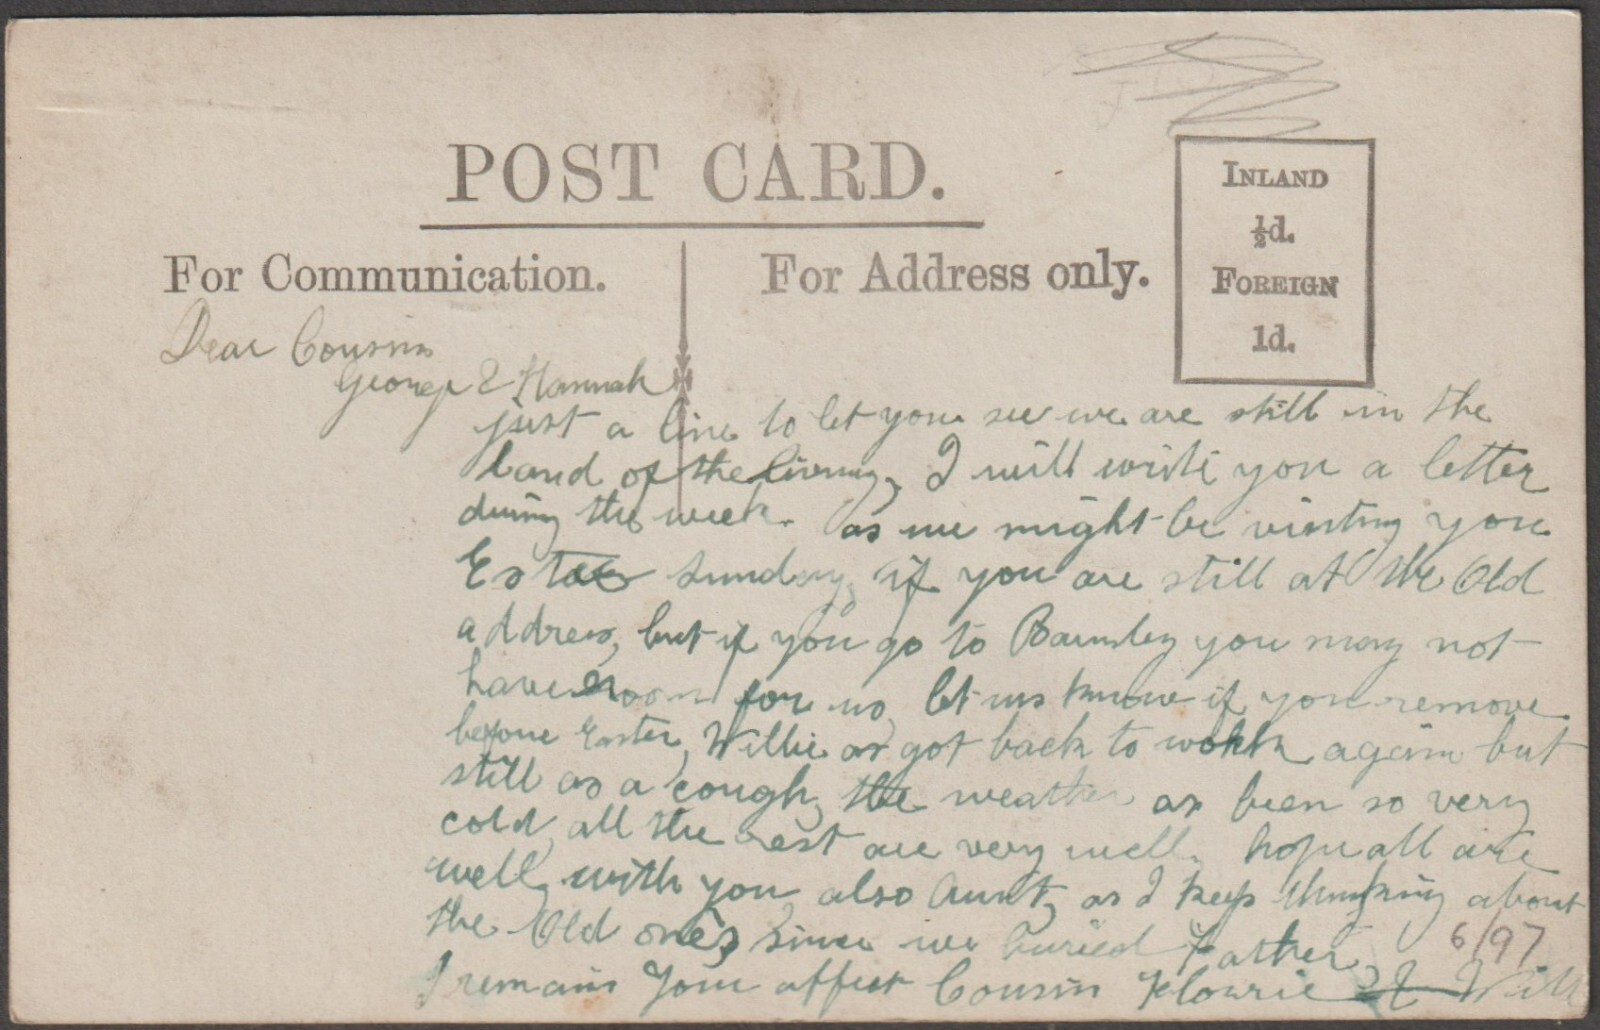 POST CARD.
For Communication.
For Address only.
INLAND
½d.
FOREIGN
1d.
Dear Cousins
George & Hannah
just a line to let you see we are still in the
land of the living, I will write you a letter
during the week. as we might be visiting you
Easter Sunday, if you are still at the Old
address, but if you go to Barnsley you may not
have room for us, let us know if you remove
before Easter, Willie as got back to work again but
still as a cough, the weather as been so very
cold, all the rest are very well, hope all are
well, with you, also Aunt, as I keep thinking about
the Old ones, since we buried Father.
6/97
I remain Your affect Cousin Florrie & Will